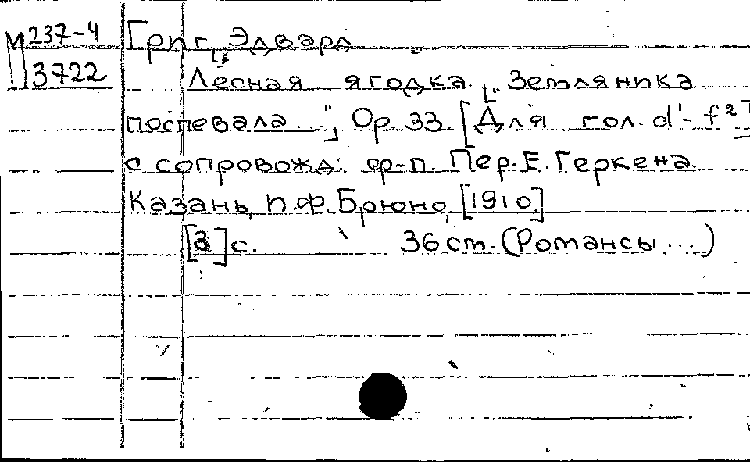 М 237-4
3722
Григ, Эдвард
Лесная ягодка. ["Земляника
поспевала..."], Ор. 33. [Для гол. d¹-f²]
с сопровожд. ф-п. Пер. Е. Геркена
Казань, П.Ф. Брюно, [1910]
[3] с. 36 см. (Романсы...)